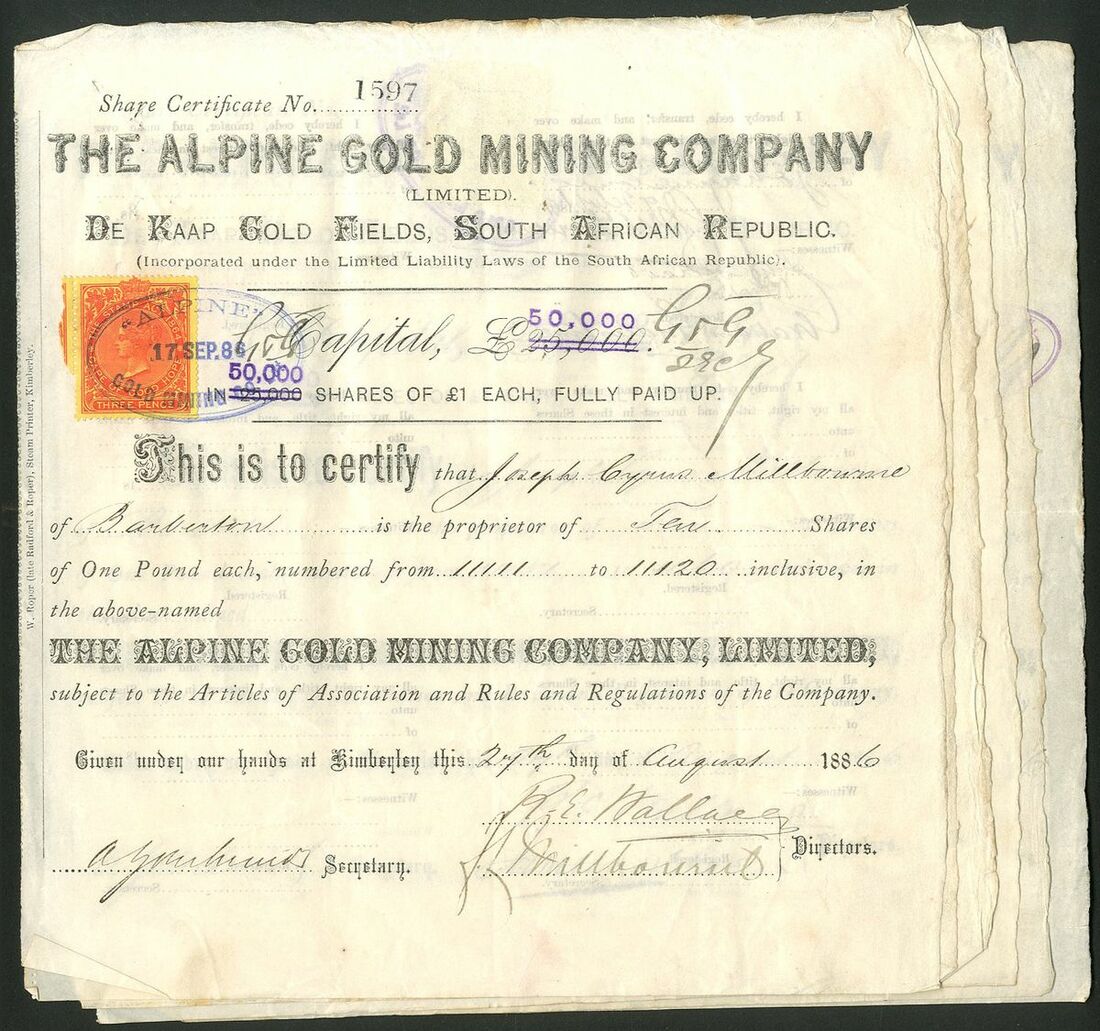 Share Certificate No. 1597
THE ALPINE GOLD MINING COMPANY
(LIMITED).
DE KAAP GOLD FIELDS, SOUTH AFRICAN REPUBLIC.
(Incorporated under the Limited Liability Laws of the South African Republic).
50,000
Capital, £25,000.
"ALPINE"
17 SEP.86
GOLD MINING
THREE PENCE
50,000
IN 25,000 SHARES OF £1 EACH, FULLY PAID UP.
This is to certify that Joseph Cyrus Millbourne
of Barberton is the proprietor of Ten Shares
of One Pound each, numbered from 11111 to 11120 inclusive, in
the above-named
THE ALPINE GOLD MINING COMPANY, LIMITED,
subject to the Articles of Association and Rules and Regulations of the Company.
Given under our hands at Kimberley this 27th day of August 1886
R.E. Wallace
Millbourne
Secretary.
Directors.
W. Roper (late Radford & Roper) Steam Printer, Kimberley.